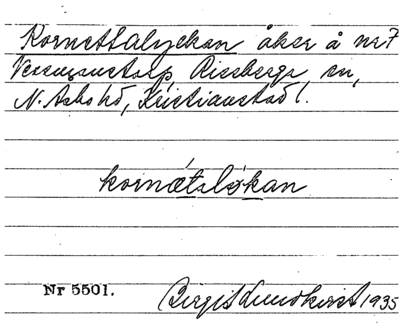 Kornettalyckan åker å nr 7
Vermanstorp, Riseberga sn,
N. Åsbo hd, Kristianstad l.
kornætalykan
Nr 5501.
Birgit Lundkvist 1935